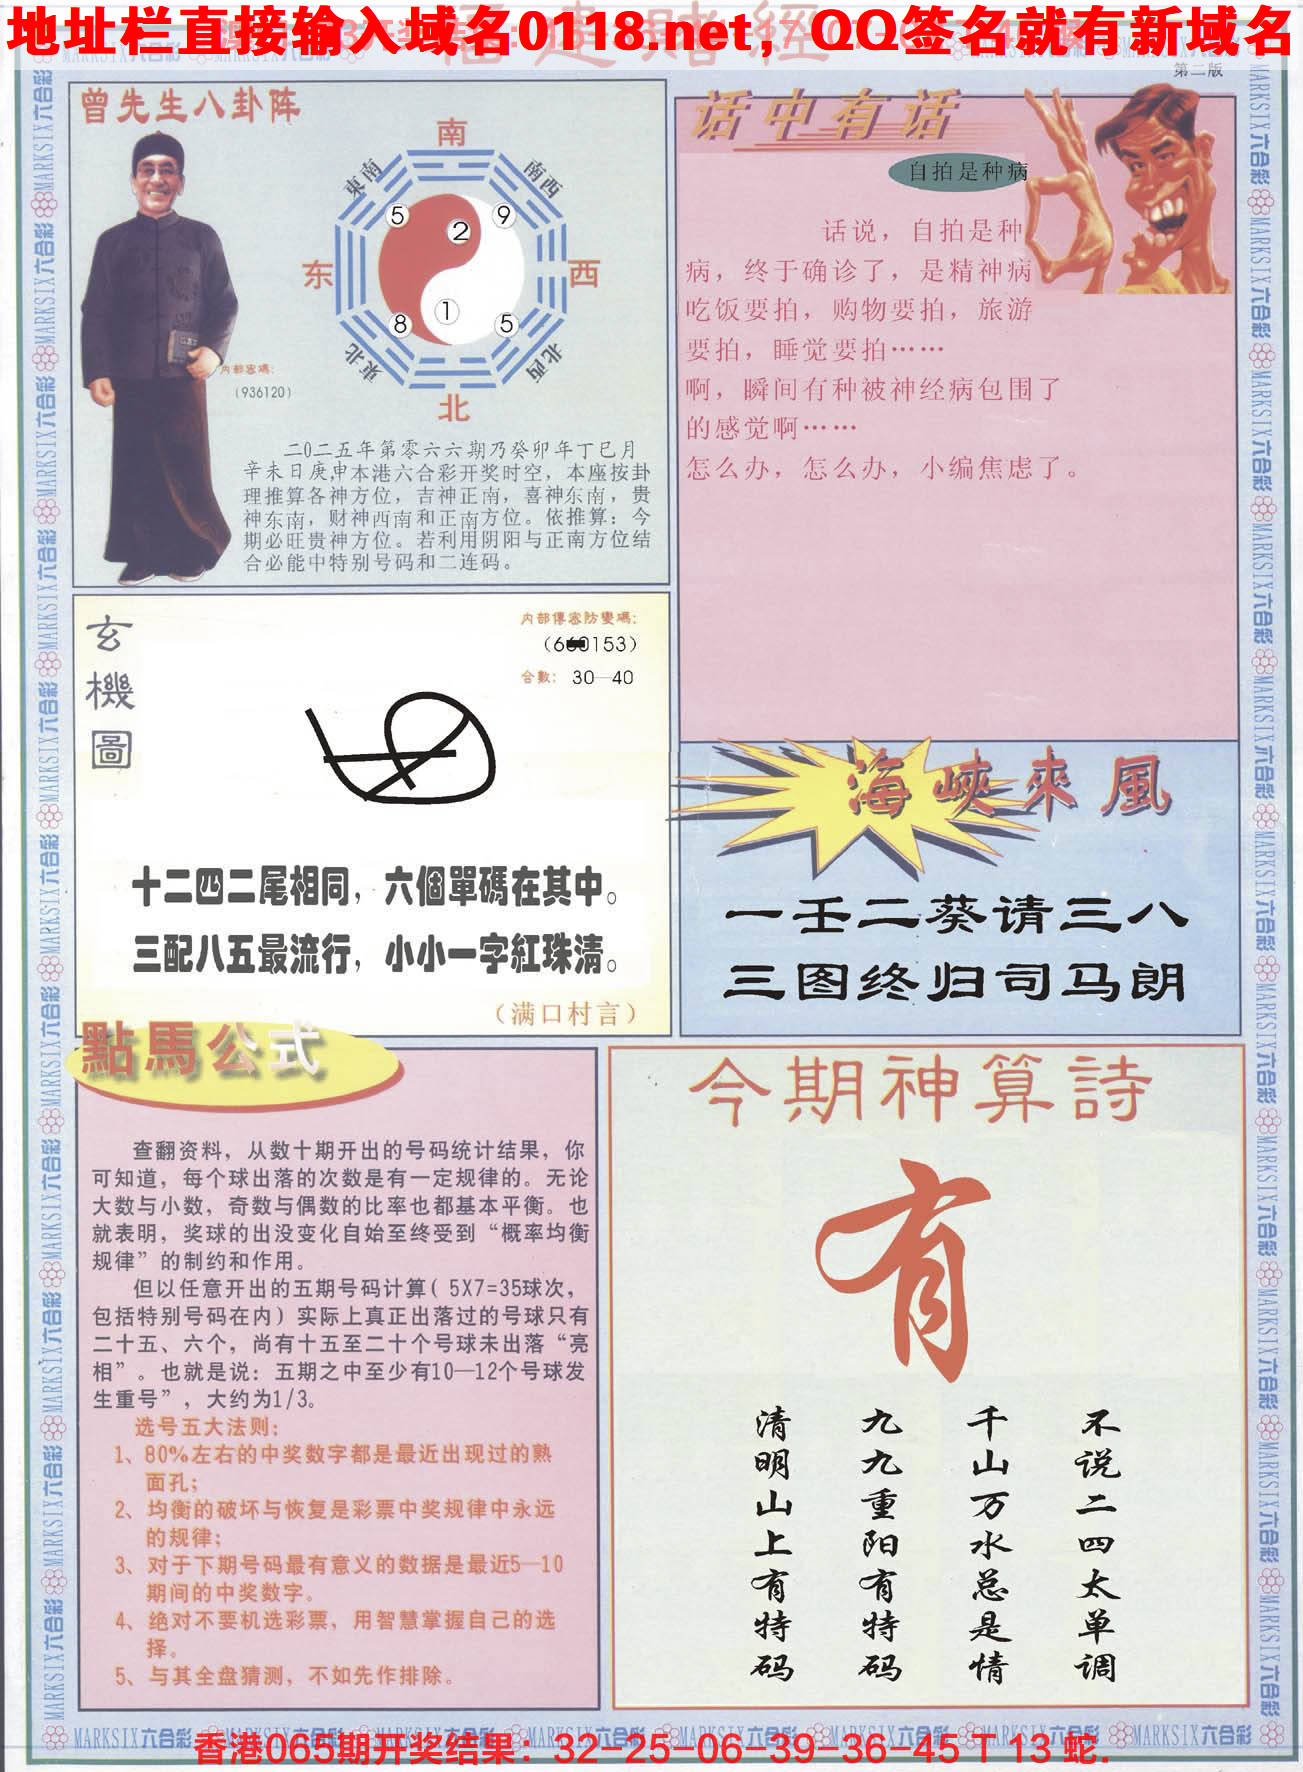 地址栏直接输入域名0118.net，QQ签名就有新域名
福建赌經
第二版
曾先生八卦阵
南
東南
南西
5
9
2
东
西
8
1
5
東北
北西
北
内部密碼：
（936120）
二0二五年第零六六期乃癸卯年丁巳月
辛未日庚申本港六合彩开奖时空，本座按卦
理推算各神方位，吉神正南，喜神东南，贵
神东南，财神西南和正南方位。依推算：今
期必旺贵神方位。若利用阴阳与正南方位结
合必能中特别号码和二连码。
话中有话
自拍是种病
话说，自拍是种
病，终于确诊了，是精神病
吃饭要拍，购物要拍，旅游
要拍，睡觉要拍……
啊，瞬间有种被神经病包围了
的感觉啊……
怎么办，怎么办，小编焦虑了。
玄機圖
内部傳密防變碼：
0153）
合數： 30—40
十二四二尾相同，六個單碼在其中。
三配八五最流行，小小一字紅珠清。
（满口村言）
海峽來風
一壬二葵请三八
三图终归司马朗
點馬公式
查翻资料，从数十期开出的号码统计结果，你
可知道，每个球出落的次数是有一定规律的。无论
大数与小数，奇数与偶数的比率也都基本平衡。也
就表明，奖球的出没变化自始至终受到“概率均衡
规律”的制约和作用。
但以任意开出的五期号码计算（5X7=35球次，
包括特别号码在内）实际上真正出落过的号球只有
二十五、六个，尚有十五至二十个号球未出落“亮
相”。也就是说：五期之中至少有10—12个号球发
生重号”，大约为1/3。
选号五大法则：
1、80%左右的中奖数字都是最近出现过的熟
面孔；
2、均衡的破坏与恢复是彩票中奖规律中永远
的规律；
3、对于下期号码最有意义的数据是最近5—10
期间的中奖数字。
4、绝对不要机选彩票，用智慧掌握自己的选
择。
5、与其全盘猜测，不如先作排除。
今期神算詩
有
不说二四太单调
千山万水总是情
九九重阳有特码
清明山上有特码
MARKSIX六合彩
香港065期开奖结果：32-25-06-39-36-45 T 13 蛇.